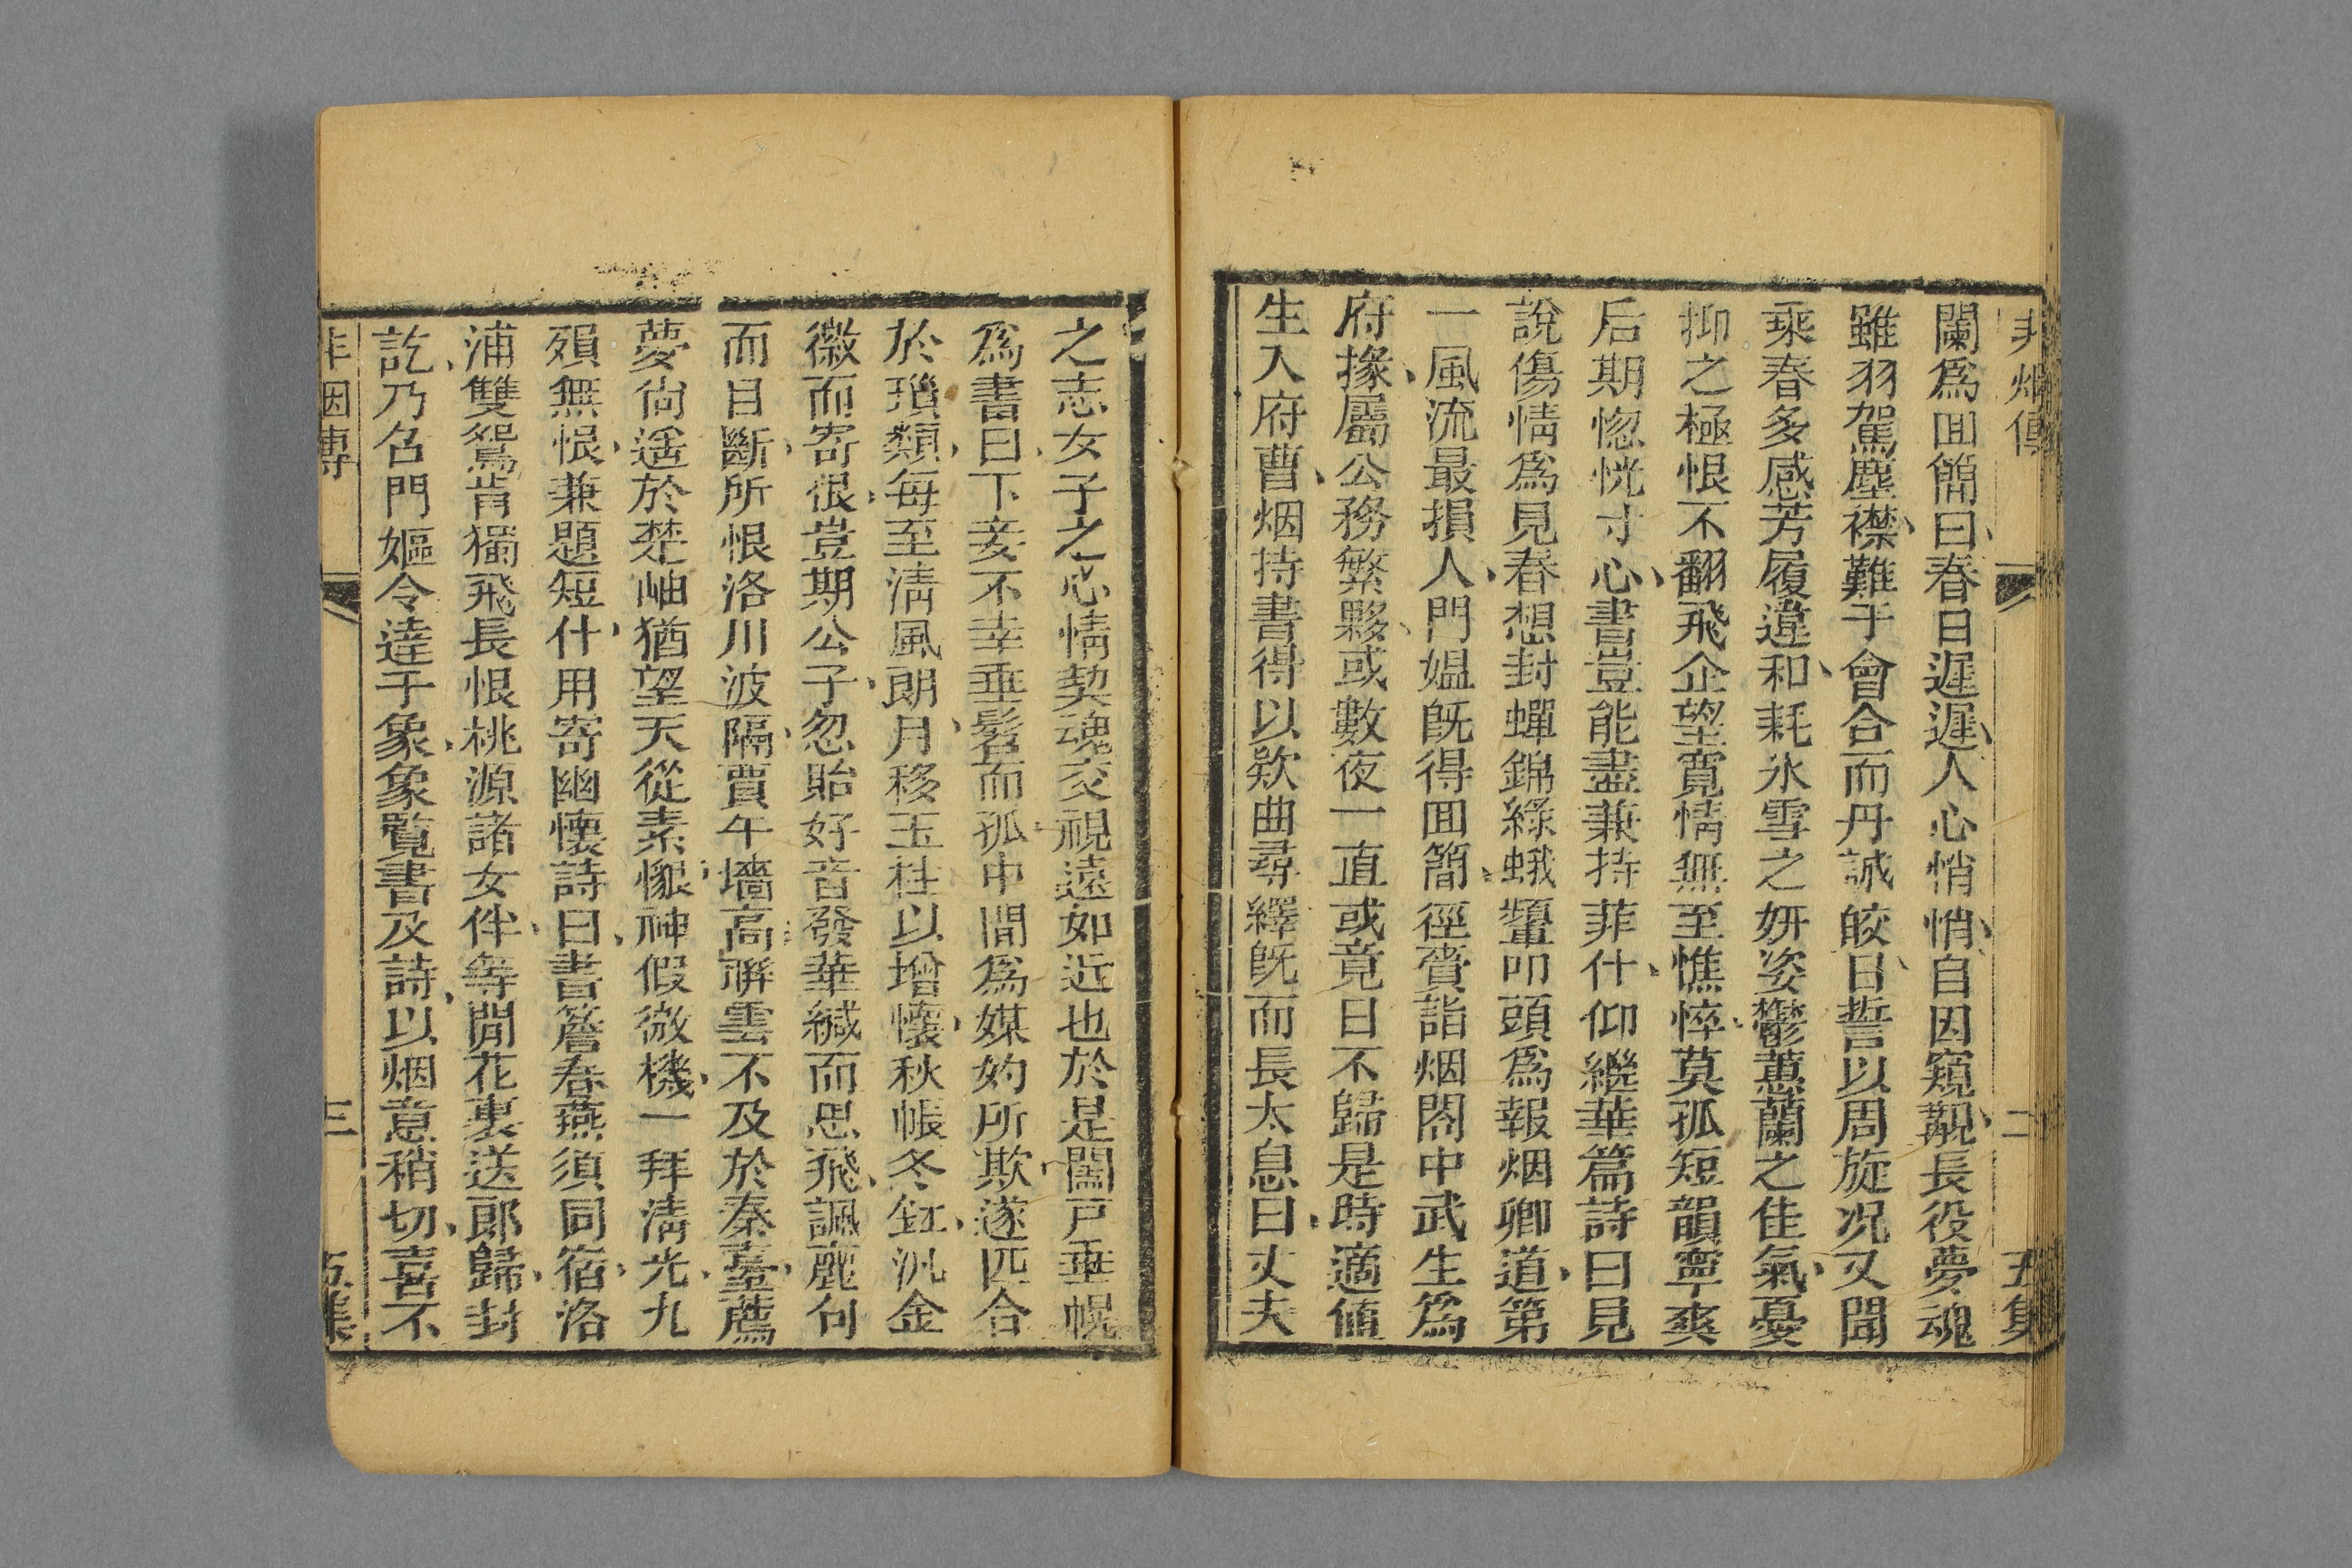 非烟傳 二 五集
闌爲回簡曰春日遲遲人心悄悄自因窺覯長役夢魂
雖羽駕塵襟難于會合而丹誠皎日誓以周旋况又聞
乘春多感芳履違和耗氷雪之妍姿鬱蕙蘭之佳氣憂
抑之極恨不翻飛企望寛情無至憔悴莫孤短韻寧爽
后期惚恍寸心書豈能盡兼持菲什仰繼華篇詩曰見
說傷情爲見春想封蟬錦綠蛾顰叩頭爲報烟卿道第
一風流最損人門媼旣得回簡徑賫詣烟閤中武生爲
府掾屬公務繁夥或數夜一直或竟日不歸是時適値
生入府曹烟持書得以欵曲尋繹旣而長太息曰丈夫
之志女子之心情契魂交視遠如近也於是闔戸垂幌
爲書曰下妾不幸垂髫而孤中間爲媒妁所欺遂匹合
於瑣類每至淸風朗月移玉柱以增懷秋帳冬釭汎金
徽而寄恨豈期公子忽貽好音發華緘而思飛諷麗句
而目斷所恨洛川波隔賈午墻高聨雲不及於秦臺薦
夢尙遙於楚岫猶望天從素懇神假微機一拜淸光九
殞無恨兼題短什用寄幽懷詩曰畫簷春燕須同宿洛
浦雙鴛肯獨飛長恨桃源諸女伴等閒花裏送郎歸封
訖乃召門嫗令達于象象覧書及詩以烟意稍切喜不
非烟傳 三 五集